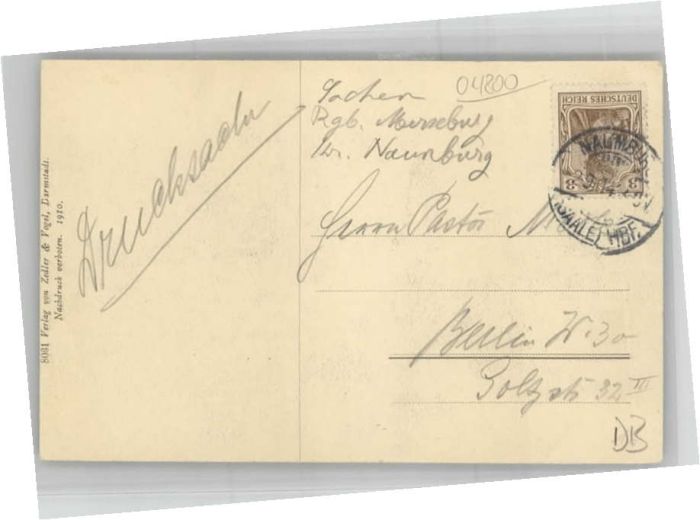 8081 Verlag von Zedler & Vogel, Darmstadt.
Nachdruck verboten. 1910.
Drucksache
04800
Rgb. Merseburg
Kr. Naumburg
DEUTSCHES REICH
3 3
NAUMBURG
(SAALE) HBF.
Herrn Pastor
Berlin W. 30
Goltzstr 32 III
DB